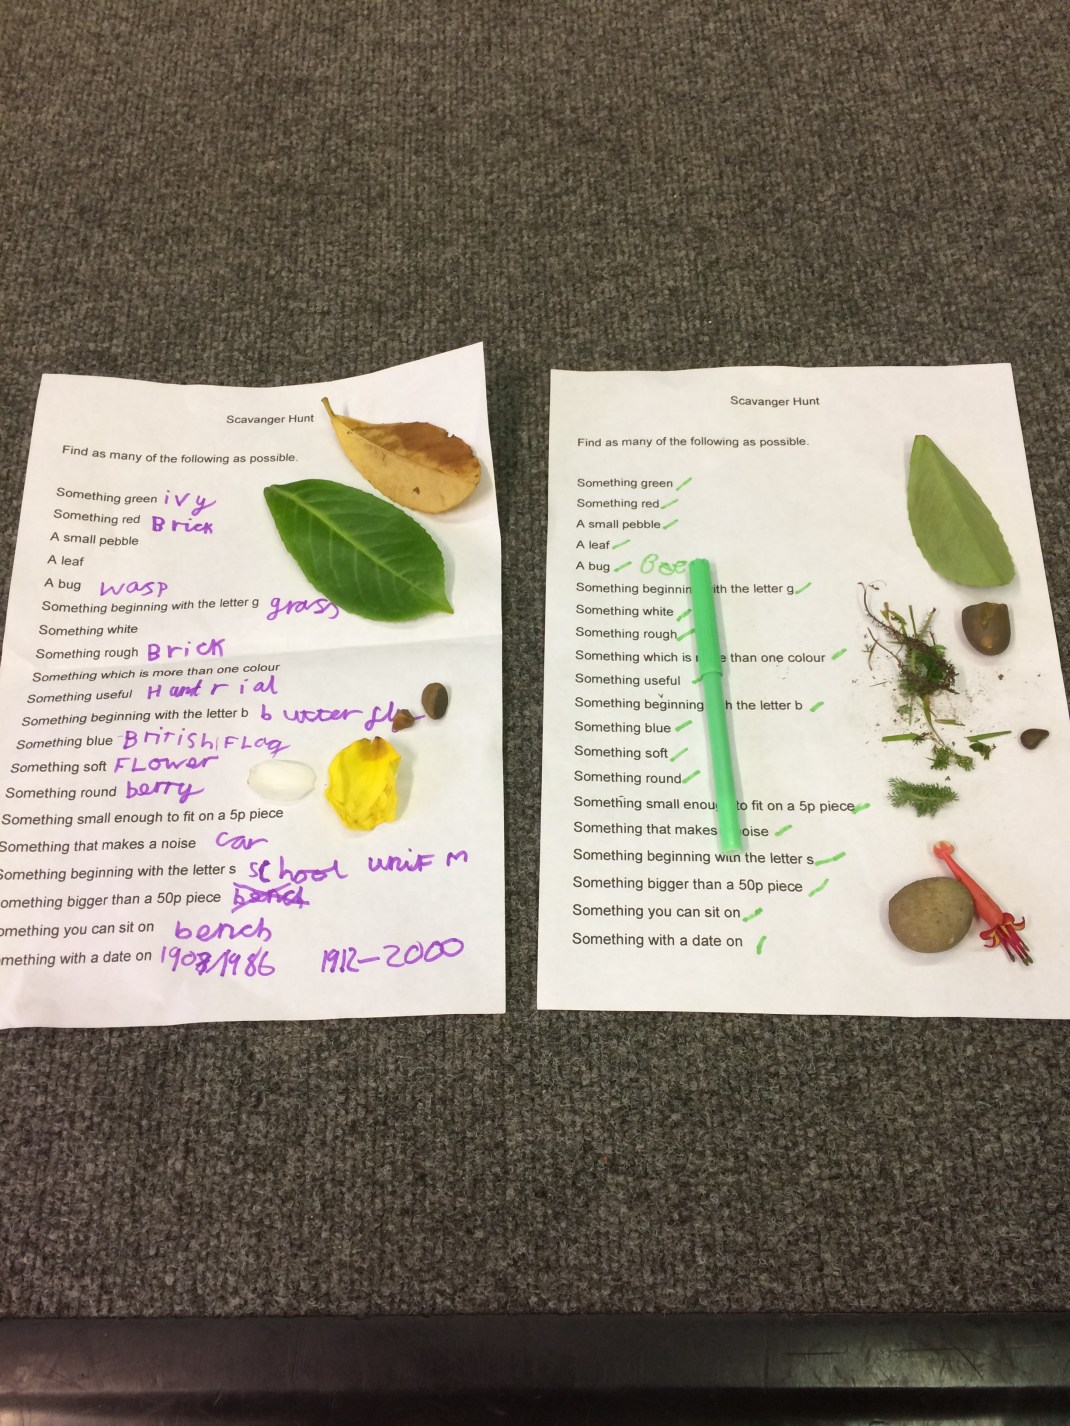 Scavanger Hunt
Find as many of the following as possible.
Something green ivy
Something red Brick
A small pebble
A leaf
A bug wasp
Something beginning with the letter g grass
Something white
Something rough Brick
Something which is more than one colour
Something useful Hantrial
Something beginning with the letter b butterfly
Something blue British Flag
Something soft FLower
Something round berry
Something small enough to fit on a 5p piece
Something that makes a noise car
Something beginning with the letter s school unifm
omething bigger than a 50p piece bench
omething you can sit on bench
mething with a date on 1986 1912-2000
Scavanger Hunt
Find as many of the following as possible.
Something green
Something red
A small pebble
A leaf
A bug Bee
Something beginnin ith the letter g
Something white
Something rough
Something which is m e than one colour
Something useful
Something beginning h the letter b
Something blue
Something soft
Something round
Something small enoug to fit on a 5p piece
Something that makes oise
Something beginning with the letter s
Something bigger than a 50p piece
Something you can sit on
Something with a date on